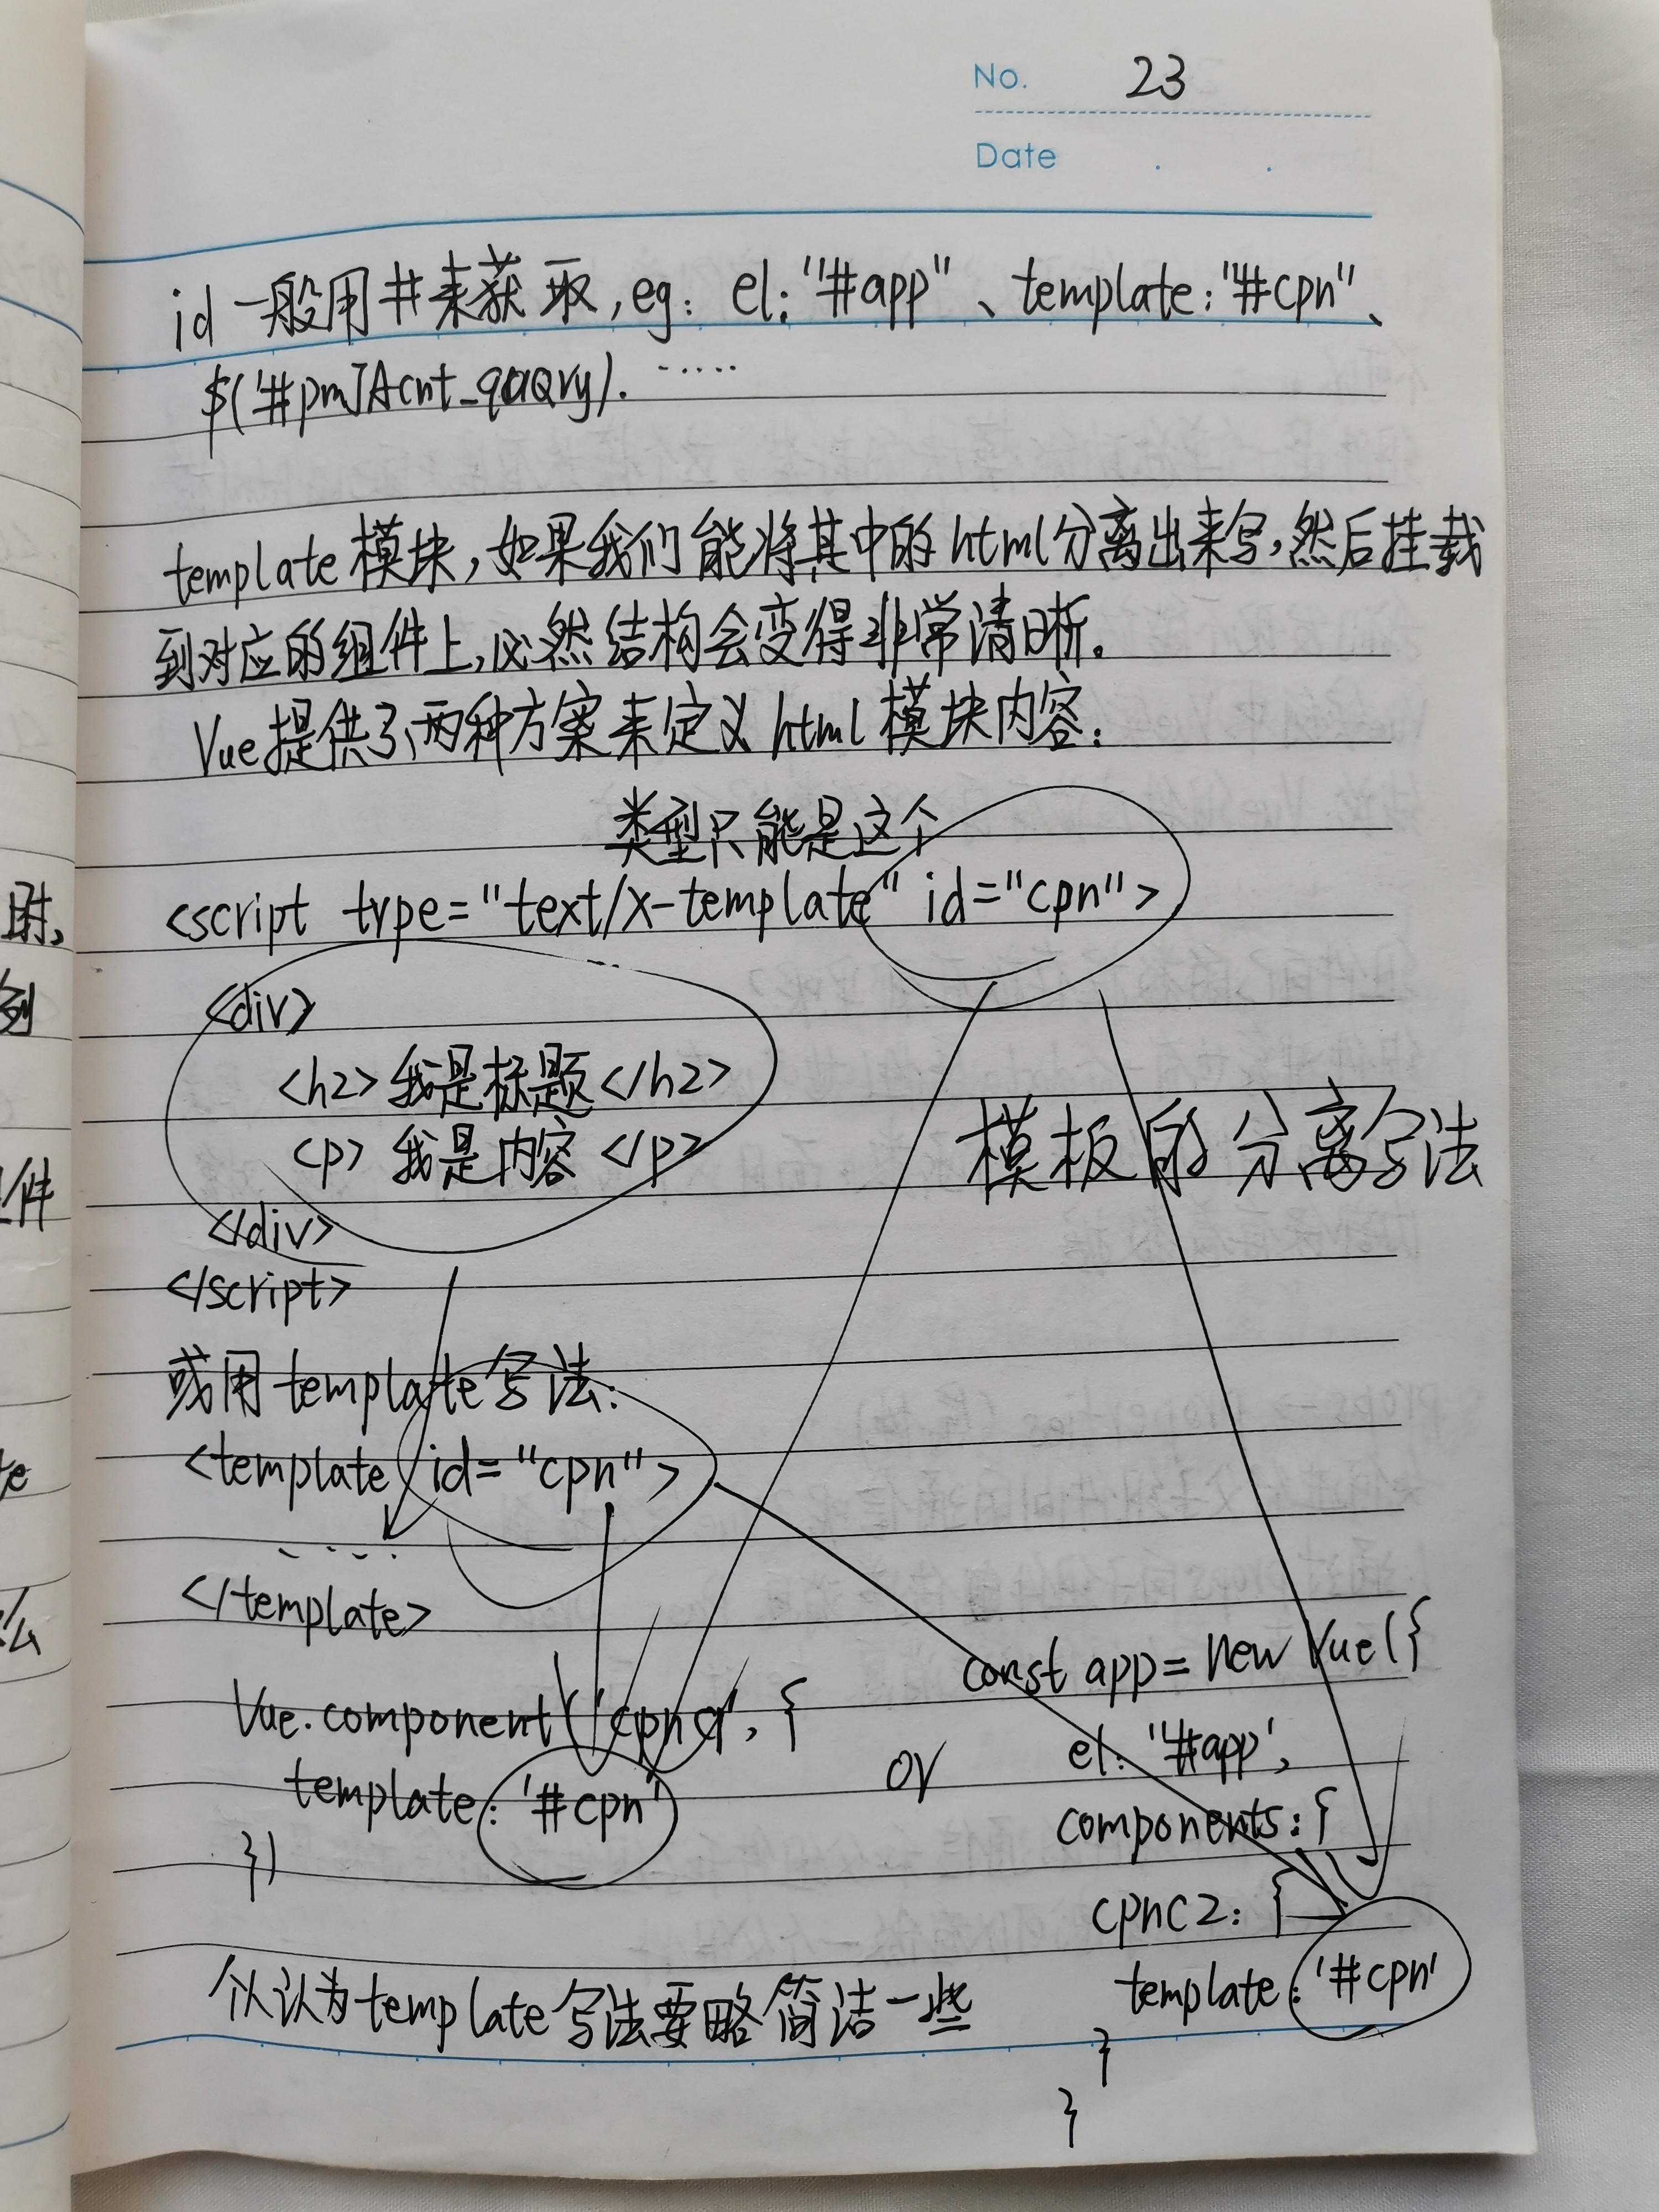 No. 23
Date
id一般用#来获取,eg: el:"#app"、template:"#cpn"、
template模块,如果我们能将其中的html分离出来写,然后挂载
到对应的组件上,必然结构会变得非常清晰。
Vue提供了两种方案来定义html模块内容:
类型只能是这个
<script type="text/x-template" id="cpn">
<div>
<h2>我是标题</h2>
<p>我是内容</p>
模板的分离写法
</div>
</script>
或用template写法:
<template id="cpn">
....
</template>
Vue.component('cpnc1', {
template: '#cpn'
})
or
const app = new Vue({
el: '#app',
components: {
cpnc2: {
template: '#cpn'
}
}
个认为template写法要略简洁一些